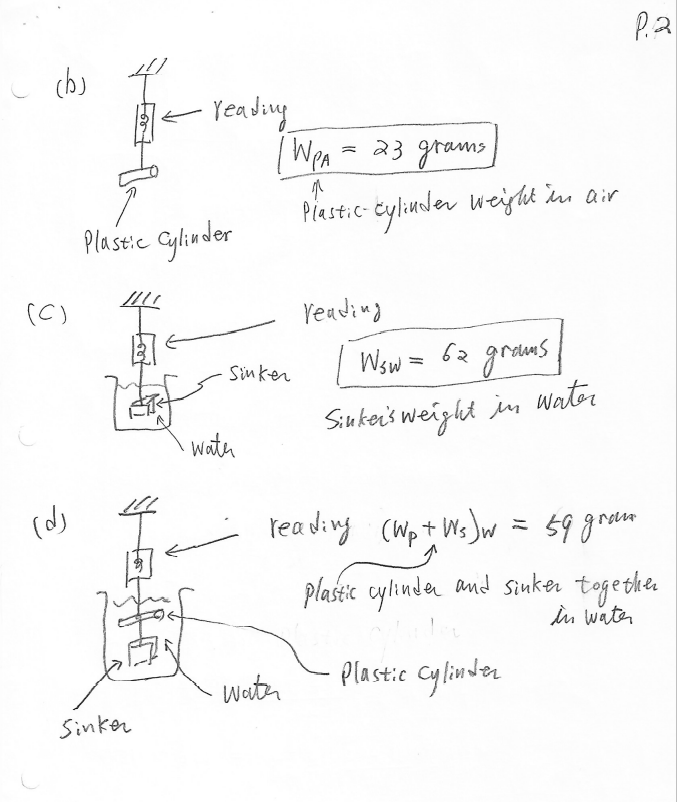 P.2
(b)
reading
W_PA = 23 grams
Plastic cylinder weight in air
Plastic Cylinder
(C)
reading
Sinker
W_SW = 62 grams
Sinker's weight in water
Water
(d)
reading (W_P + W_S)_W = 59 gram
plastic cylinder and sinker together
in water
Plastic Cylinder
Water
Sinker